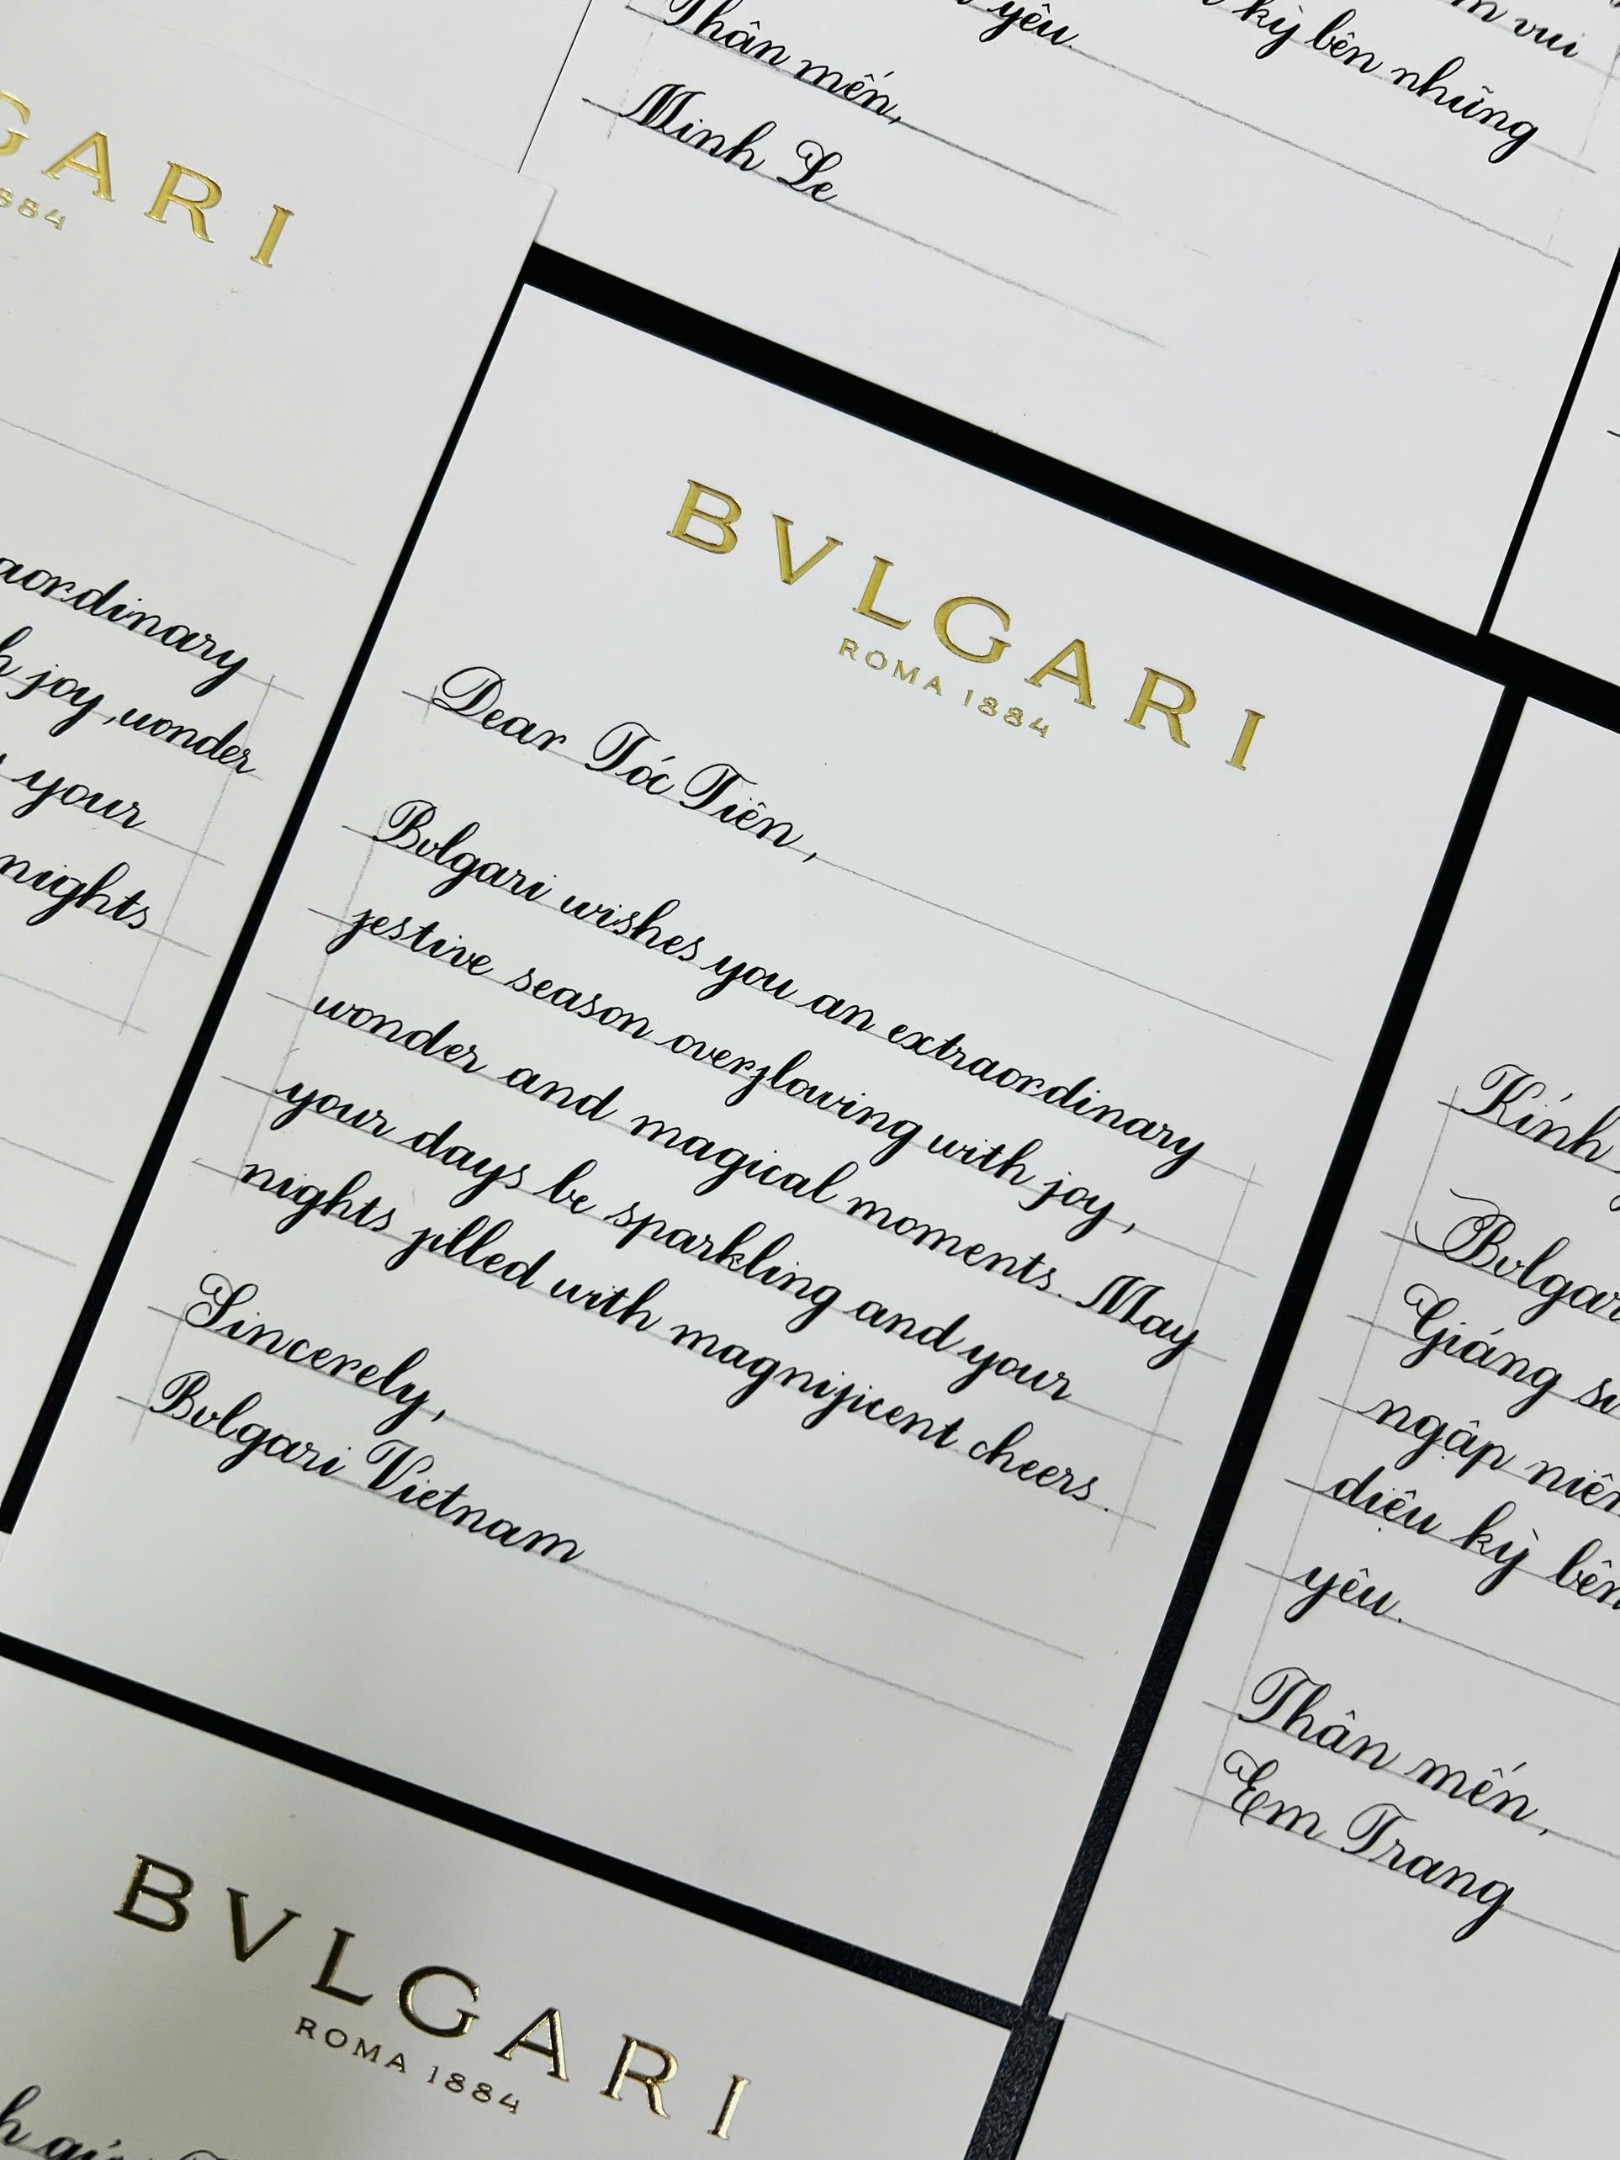 m vui
yêu. kỳ bên những
Thân mến,
Minh Le
GARI
884
aordinary
h joy, wonder
your
nights
BVLGARI
ROMA 1884
Dear Tóc Tiên,
Bvlgari wishes you an extraordinary
festive season overflowing with joy,
wonder and magical moments. May
your days be sparkling and your
nights filled with magnificent cheers.
Sincerely,
Bvlgari Vietnam
Kính
Bvlgar
Giáng si
ngập niên
diệu kỳ bên
yêu.
Thân mến,
Em Trang
BVLGARI
ROMA 1884